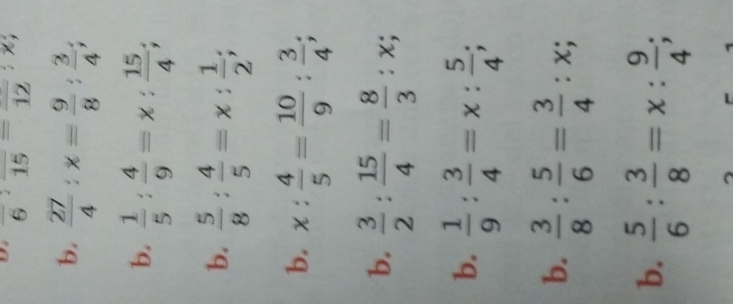 b. 6 : 15 = 12 : x;
b. 27/4 : x = 9/8 : 3/4;
b. 1/5 : 4/9 = x : 15/4;
b. 5/8 : 4/5 = x : 1/2;
b. x : 4/5 = 10/9 : 3/4;
b. 3/2 : 15/4 = 8/3 : x;
b. 1/9 : 3/4 = x : 5/4;
b. 3/8 : 5/6 = 3/4 : x;
b. 5/6 : 3/8 = x : 9/4;